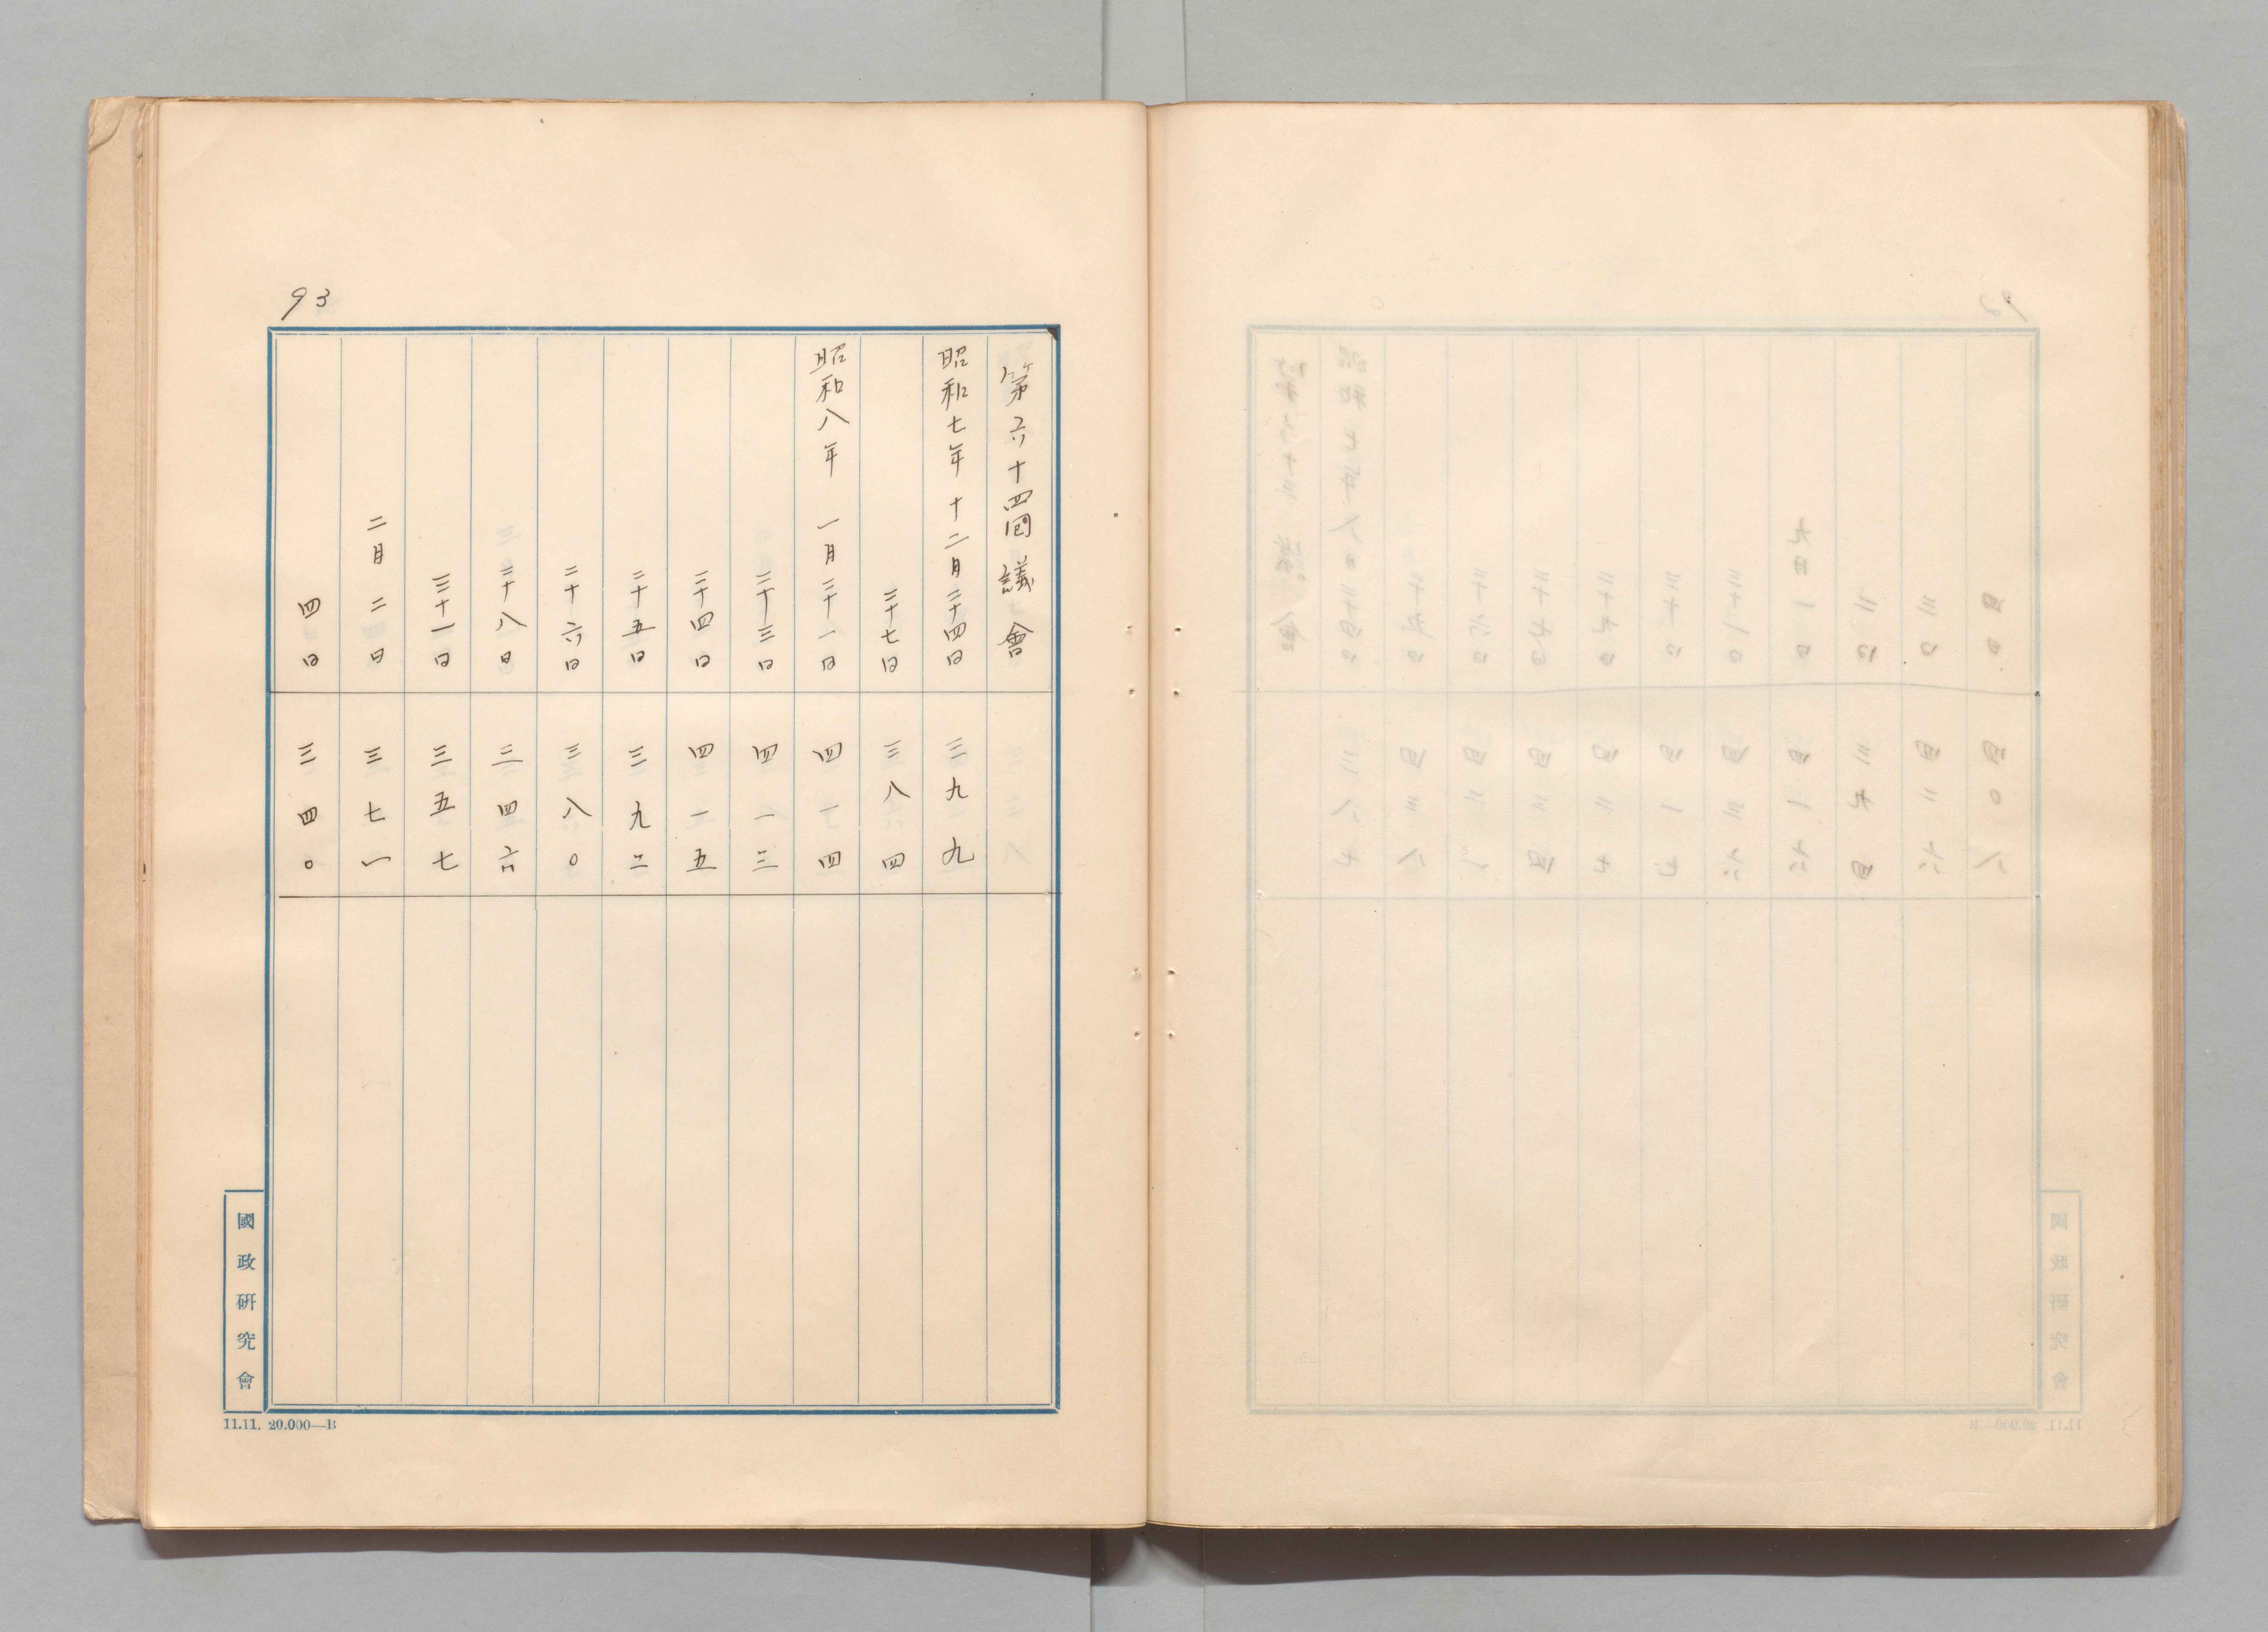 93
第六十四回議會
昭和七年 十二月二十四日 三九九
二十七日 三八四
昭和八年 一月二十一日 四一四
二十三日 四一三
二十四日 四一五
二十五日 三九二
二十六日 三八〇
二十八日 三四六
三十一日 三五七
二月 二日 三七一
四日 三四〇
國政硏究會
11.11. 20.000—B